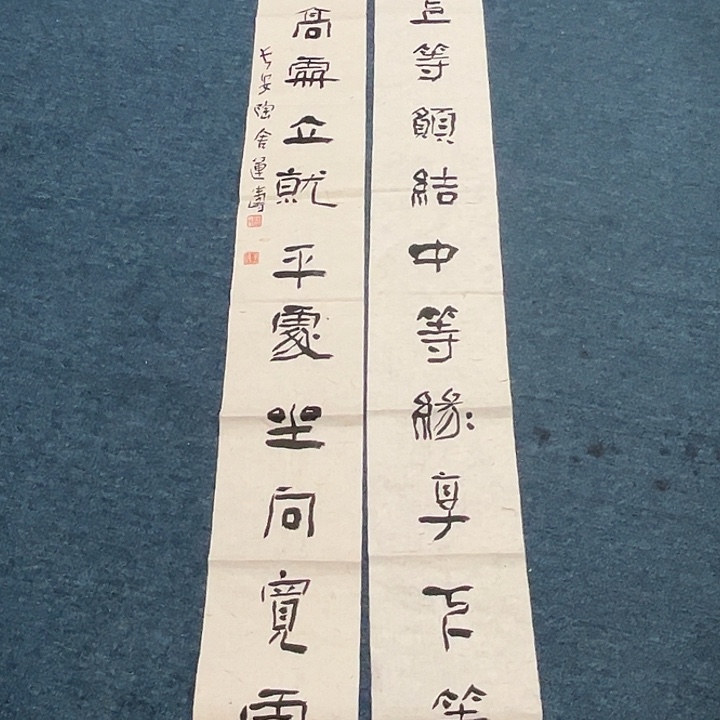 上等願結中等緣享下等
高處立就平處坐向寬處
长安陶舍運